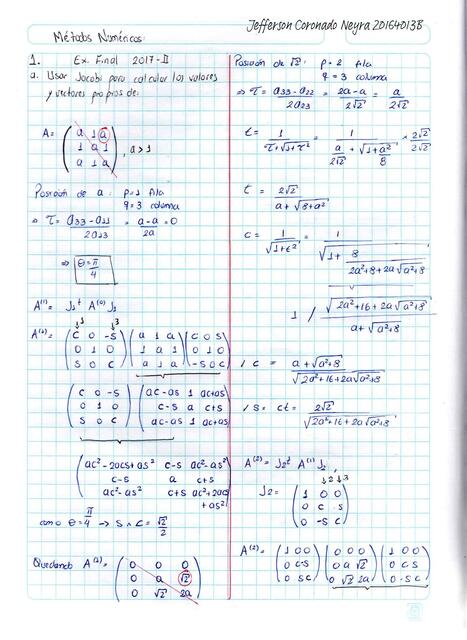 Jefferson Coronado Neyra 20164013B
Métodos Numéricos:
1. Ex. Final 2017-II
a. Usar Jacobi para calcular los valores
y vectores propios de:
A= (a 1 a
1 a 1
a 1 a) , a>1
Posición de a: p=1 fila
q=3 columna
⇒ τ = (a33-a11)/(2a13) = (a-a)/(2a) = 0
⇒ θ=π/4
A(1) = J1^t A(0) J1
↓1 ↓3
A(1)= (C 0 -S
0 1 0
S 0 C) (a 1 a
1 a 1
a 1 a) (C 0 S
0 1 0
-S 0 C)
(C 0 -S
0 1 0
S 0 C) (ac-as 1 ac+as
c-s a c+s
ac-as 1 ac+as)
(ac²-2acs+as² c-s ac²-as²
c-s a c+s
ac²-as² c+s ac²+2acs+as²)
como θ=π/4 → S ∧ C = √2/2
Quedando A(1) = (0 0 0
0 a √2
0 √2 2a)
Posición de √2: p=2 fila
q=3 columna
⇒ τ = (a33-a22)/(2a23) = (2a-a)/(2√2) = a/(2√2)
t = 1/(τ+√(1+τ²)) = 1/(a/(2√2) + √(1+a²/8)) × 2√2/2√2
t = 2√2/(a+√(8+a²))
c = 1/√(1+t²) = 1/√(1 + 8/(2a²+8+2a√(a²+8)))
1 / (√(2a²+16+2a√(a²+8))/(a+√(a²+8)))
/ c = (a+√(a²+8))/√(2a²+16+2a√(a²+8))
/ s = ct = 2√2/√(2a²+16+2a√(a²+8))
A(2) = J2^t A(1) J2
↓2 ↓3
J2 = (1 0 0
0 C S
0 -S C)
A(2) = (1 0 0
0 C -S
0 S C) (0 0 0
0 a √2
0 √2 2a) (1 0 0
0 C S
0 -S C)